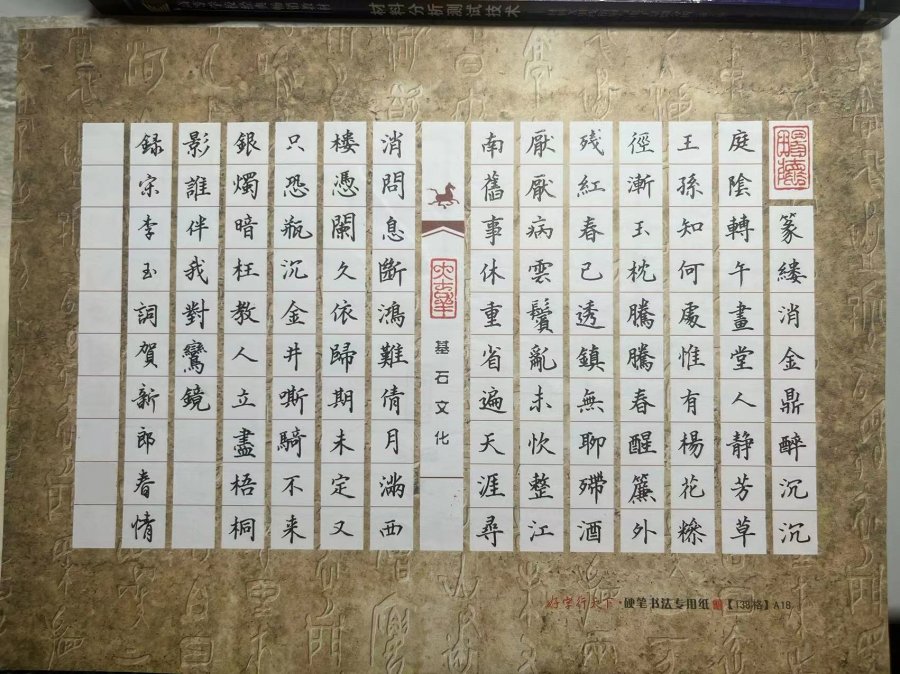 高等学校经典畅销教材
材料分析测试技术
篆縷消金鼎醉沉沉
庭陰轉午畫堂人静芳草
王孫知何處惟有楊花糝
徑漸玉枕騰騰春醒簾外
残紅春已透鎮無聊殢酒
厭厭病雲鬢亂未忺整江
南舊事休重省遍天涯尋
基石文化
消問息斷鴻難倩月滿西
楼憑闌久依歸期未定又
只恐瓶沉金井嘶騎不来
銀燭暗枉教人立盡梧桐
影誰伴我對鸞鏡
録宋李玉詞賀新郎春情
好字行天下·硬笔书法专用纸【138格】A18